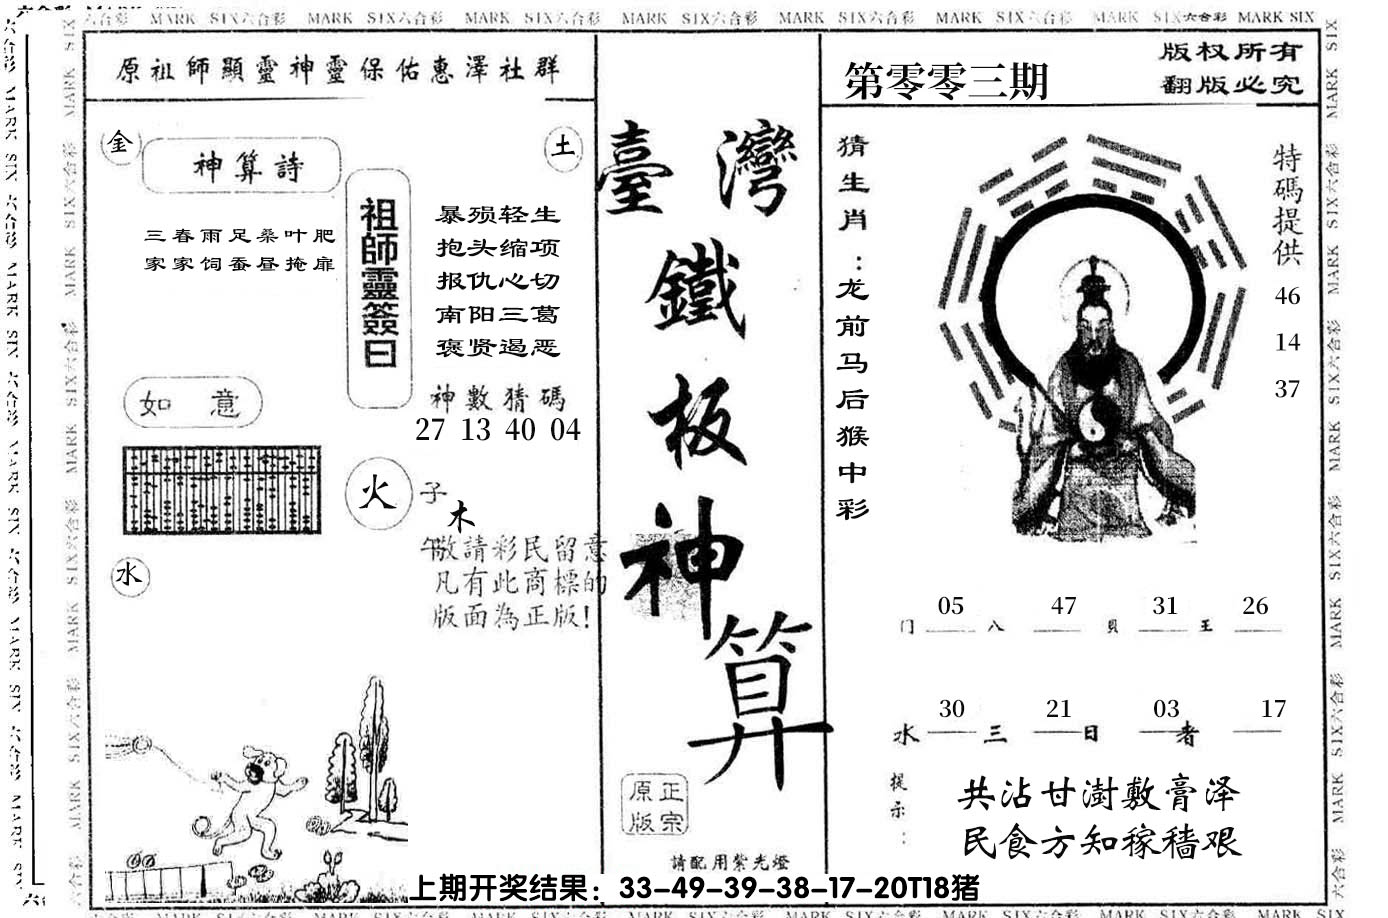 六合彩 MARK SIX六合彩 MARK SIX六合彩 MARK SIX六合彩 MARK SIX六合彩 MARK SIX六合彩 MARK SIX六合彩 MARK SIX六合彩 MARK SIX
原祖師顯靈神靈保佑惠澤社群
金
神算詩
土
三春雨足桑叶肥
家家饲蚕昼掩扉
祖師靈簽曰
暴殒轻生
抱头缩项
报仇心切
南阳三葛
褒贤遏恶
神數猜碼
27 13 40 04
如 意
火
子
木
午
水
敬請彩民留意
凡有此商標的
版面為正版!
臺灣
鐵
板
神
算
正宗
原版
請配用紫光燈
第零零三期
版权所有
翻版必究
猜生肖：龙前马后猴中彩
特碼提供
46
14
37
05 47 31 26
门 八 貝 王
30 21 03 17
水 三 日 者
提示：
共沾甘澍敷膏泽
民食方知稼穑艰
上期开奖结果：33-49-39-38-17-20T18猪